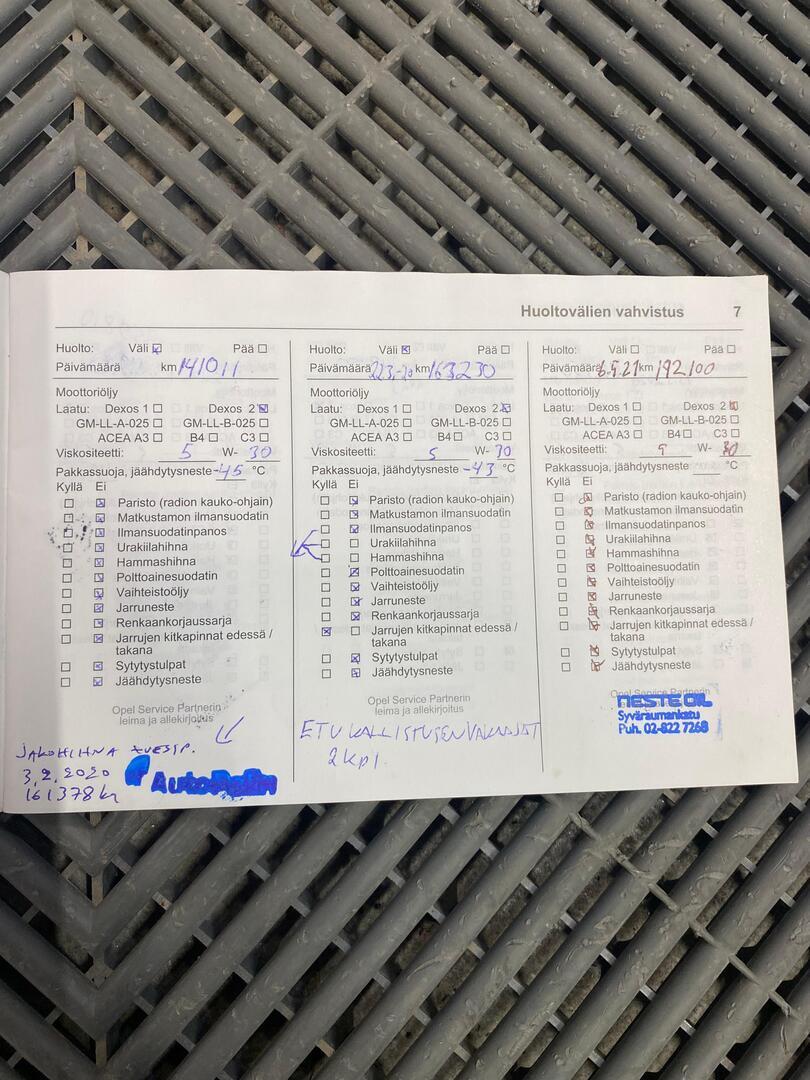 Huoltovälien vahvistus 7
Huolto: Väli Pää
Päivämäärä km 141011
Moottoriöljy
Laatu: Dexos 1 Dexos 2
GM-LL-A-025 GM-LL-B-025
ACEA A3 B4 C3
Viskositeetti: 5 W- 30
Pakkassuoja, jäähdytysneste -45 °C
Kyllä Ei
Paristo (radion kauko-ohjain)
Matkustamon ilmansuodatin
Ilmansuodatinpanos
Urakiilahihna
Hammashihna
Polttoainesuodatin
Vaihteistoöljy
Jarruneste
Renkaankorjaussarja
Jarrujen kitkapinnat edessä /
takana
Sytytystulpat
Jäähdytysneste
Opel Service Partnerin
leima ja allekirjoitus
JAKOHIHNA
3.2.2020
161378
Huolto: Väli Pää
Päivämäärä km 163230
Moottoriöljy
Laatu: Dexos 1 Dexos 2
GM-LL-A-025 GM-LL-B-025
ACEA A3 B4 C3
Viskositeetti: 5 W- 30
Pakkassuoja, jäähdytysneste -43 °C
Kyllä Ei
Paristo (radion kauko-ohjain)
Matkustamon ilmansuodatin
Ilmansuodatinpanos
Urakiilahihna
Hammashihna
Polttoainesuodatin
Vaihteistoöljy
Jarruneste
Renkaankorjaussarja
Jarrujen kitkapinnat edessä /
takana
Sytytystulpat
Jäähdytysneste
Opel Service Partnerin
leima ja allekirjoitus
2 kpl.
Huolto: Väli Pää
Päivämäärä 6.9.21 km 192100
Moottoriöljy
Laatu: Dexos 1 Dexos 2
GM-LL-A-025 GM-LL-B-025
ACEA A3 B4 C3
Viskositeetti: W- 30
Pakkassuoja, jäähdytysneste °C
Kyllä Ei
Paristo (radion kauko-ohjain)
Matkustamon ilmansuodatin
Ilmansuodatinpanos
Urakiilahihna
Hammashihna
Polttoainesuodatin
Vaihteistoöljy
Jarruneste
Renkaankorjaussarja
Jarrujen kitkapinnat edessä /
takana
Sytytystulpat
Jäähdytysneste
Opel Service Partnerin
NESTE OIL
Syväraumankatu
Puh. 02-822 7268